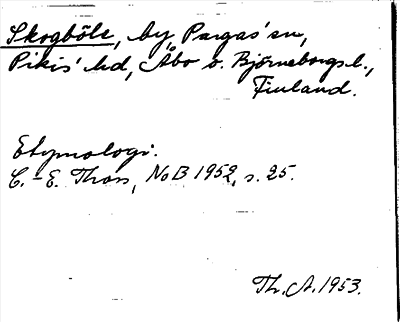 Skogböle, by, Pargas' sn,
Pikis' hd, Åbo o. Björneborgs l.,
Finland.
Etymologi.
C.-E. Thors, NoB 1952, s. 25.
Th. A. 1953.